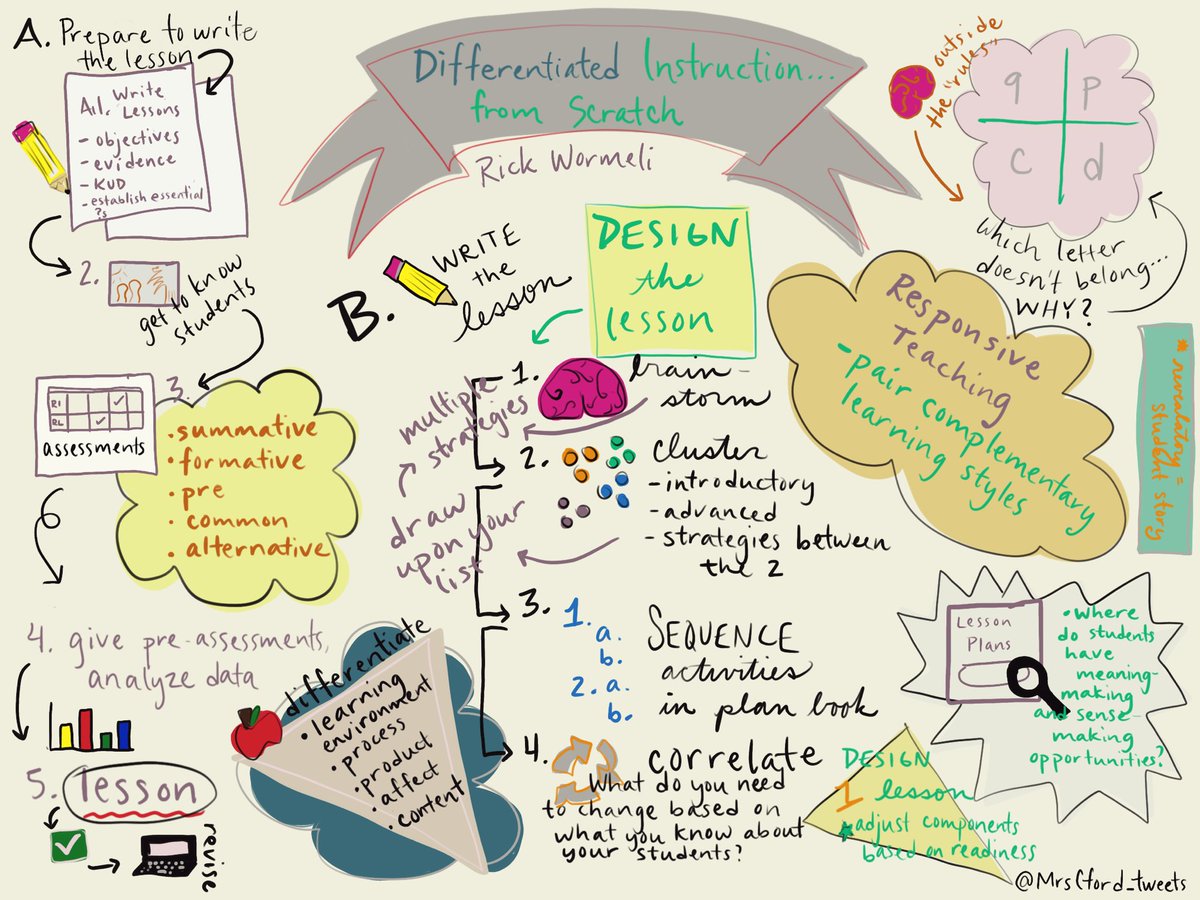 Differentiated Instruction...
from Scratch
Rick Wormeli
A. Prepare to write
the lesson
Write
A.1. Lessons
- objectives
- evidence
- KUD
- establish essential
?s
2.
get to know
students
3.
R1
assessments
• summative
• formative
• pre
• common
• alternative
4. give pre-assessments,
analyze data
5. lesson
revise
B. WRITE
the
lesson
DESIGN
the
lesson
1. brain-
storm
multiple
strategies
2. cluster
- introductory
- advanced
- strategies between
the 2
draw
upon your
list
3. 1.
a.
b.
2. a.
b.
SEQUENCE
activities
in plan book
4. correlate
What do you need
to change based on
what you know about
your students?
differentiate
• learning
environment
• process
• product
• affect
• content
outside
the "rules"
q p
c d
which letter
doesn't belong...
WHY?
Responsive
Teaching
- pair complementary
learning styles
* revealatory =
student story
Lesson
Plans
• Where
do students
have
meaning-
making
and sense-
making
opportunities?
DESIGN
1 lesson
* adjust components
based on readiness
@MrsCford_tweets